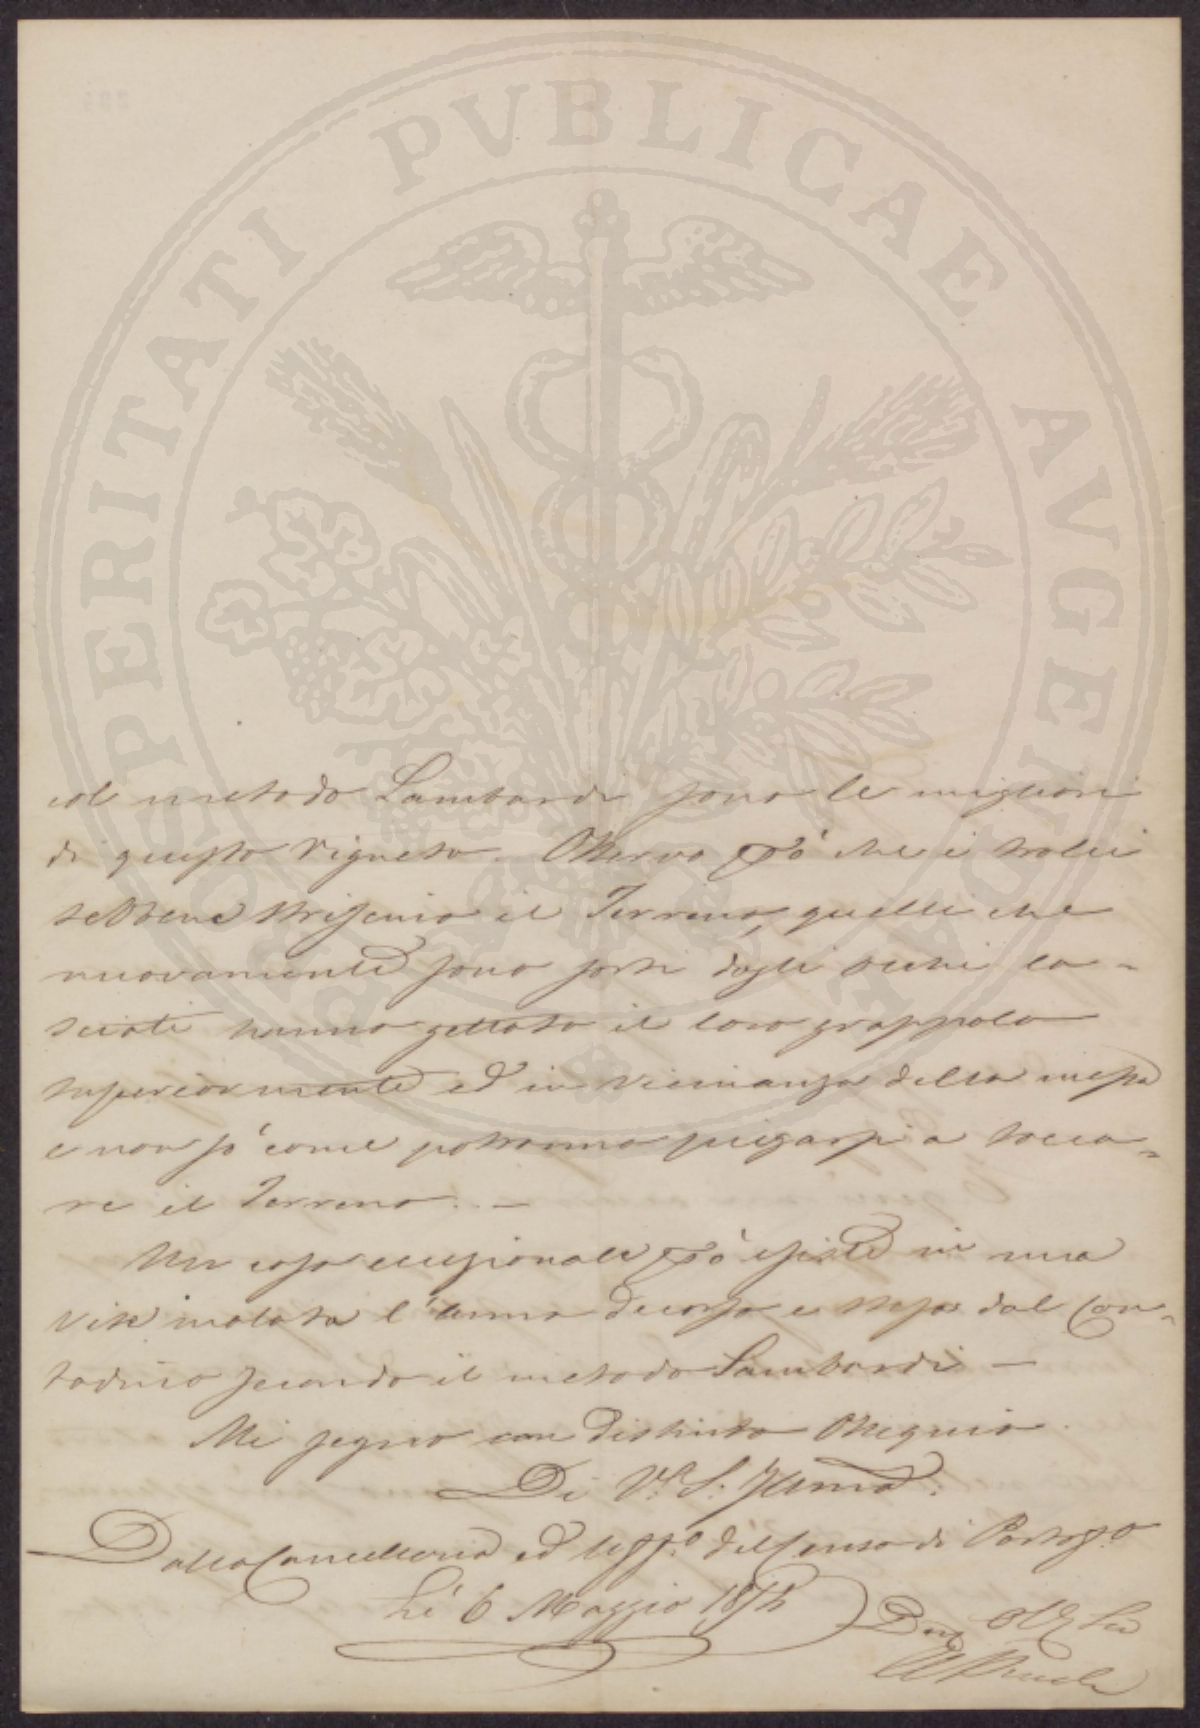 PROSPERITATI PUBLICAE AUGENDAE
col metodo Lambardi sono le migliori
di questo Vigneto. Osservo però che i tralci
sebbene strisciano il Terreno, quelli che
nuovamente sono sorti dagli occhi la-
sciati hanno gettato il loro grappolo
superiormente ed in vicinanza della messa
e non so come potranno piegarsi a tocca-
re il Terreno. —
Un caso eccezionale però esiste in una
Vite malata l'anno decorso e stesa dal Con-
tadino secondo il metodo Lambardi —
Mi segno con distinto Ossequio
Di V.S. Illma
Dalla Cancelleria ed Uffo del Censo di
Li 6 Maggio